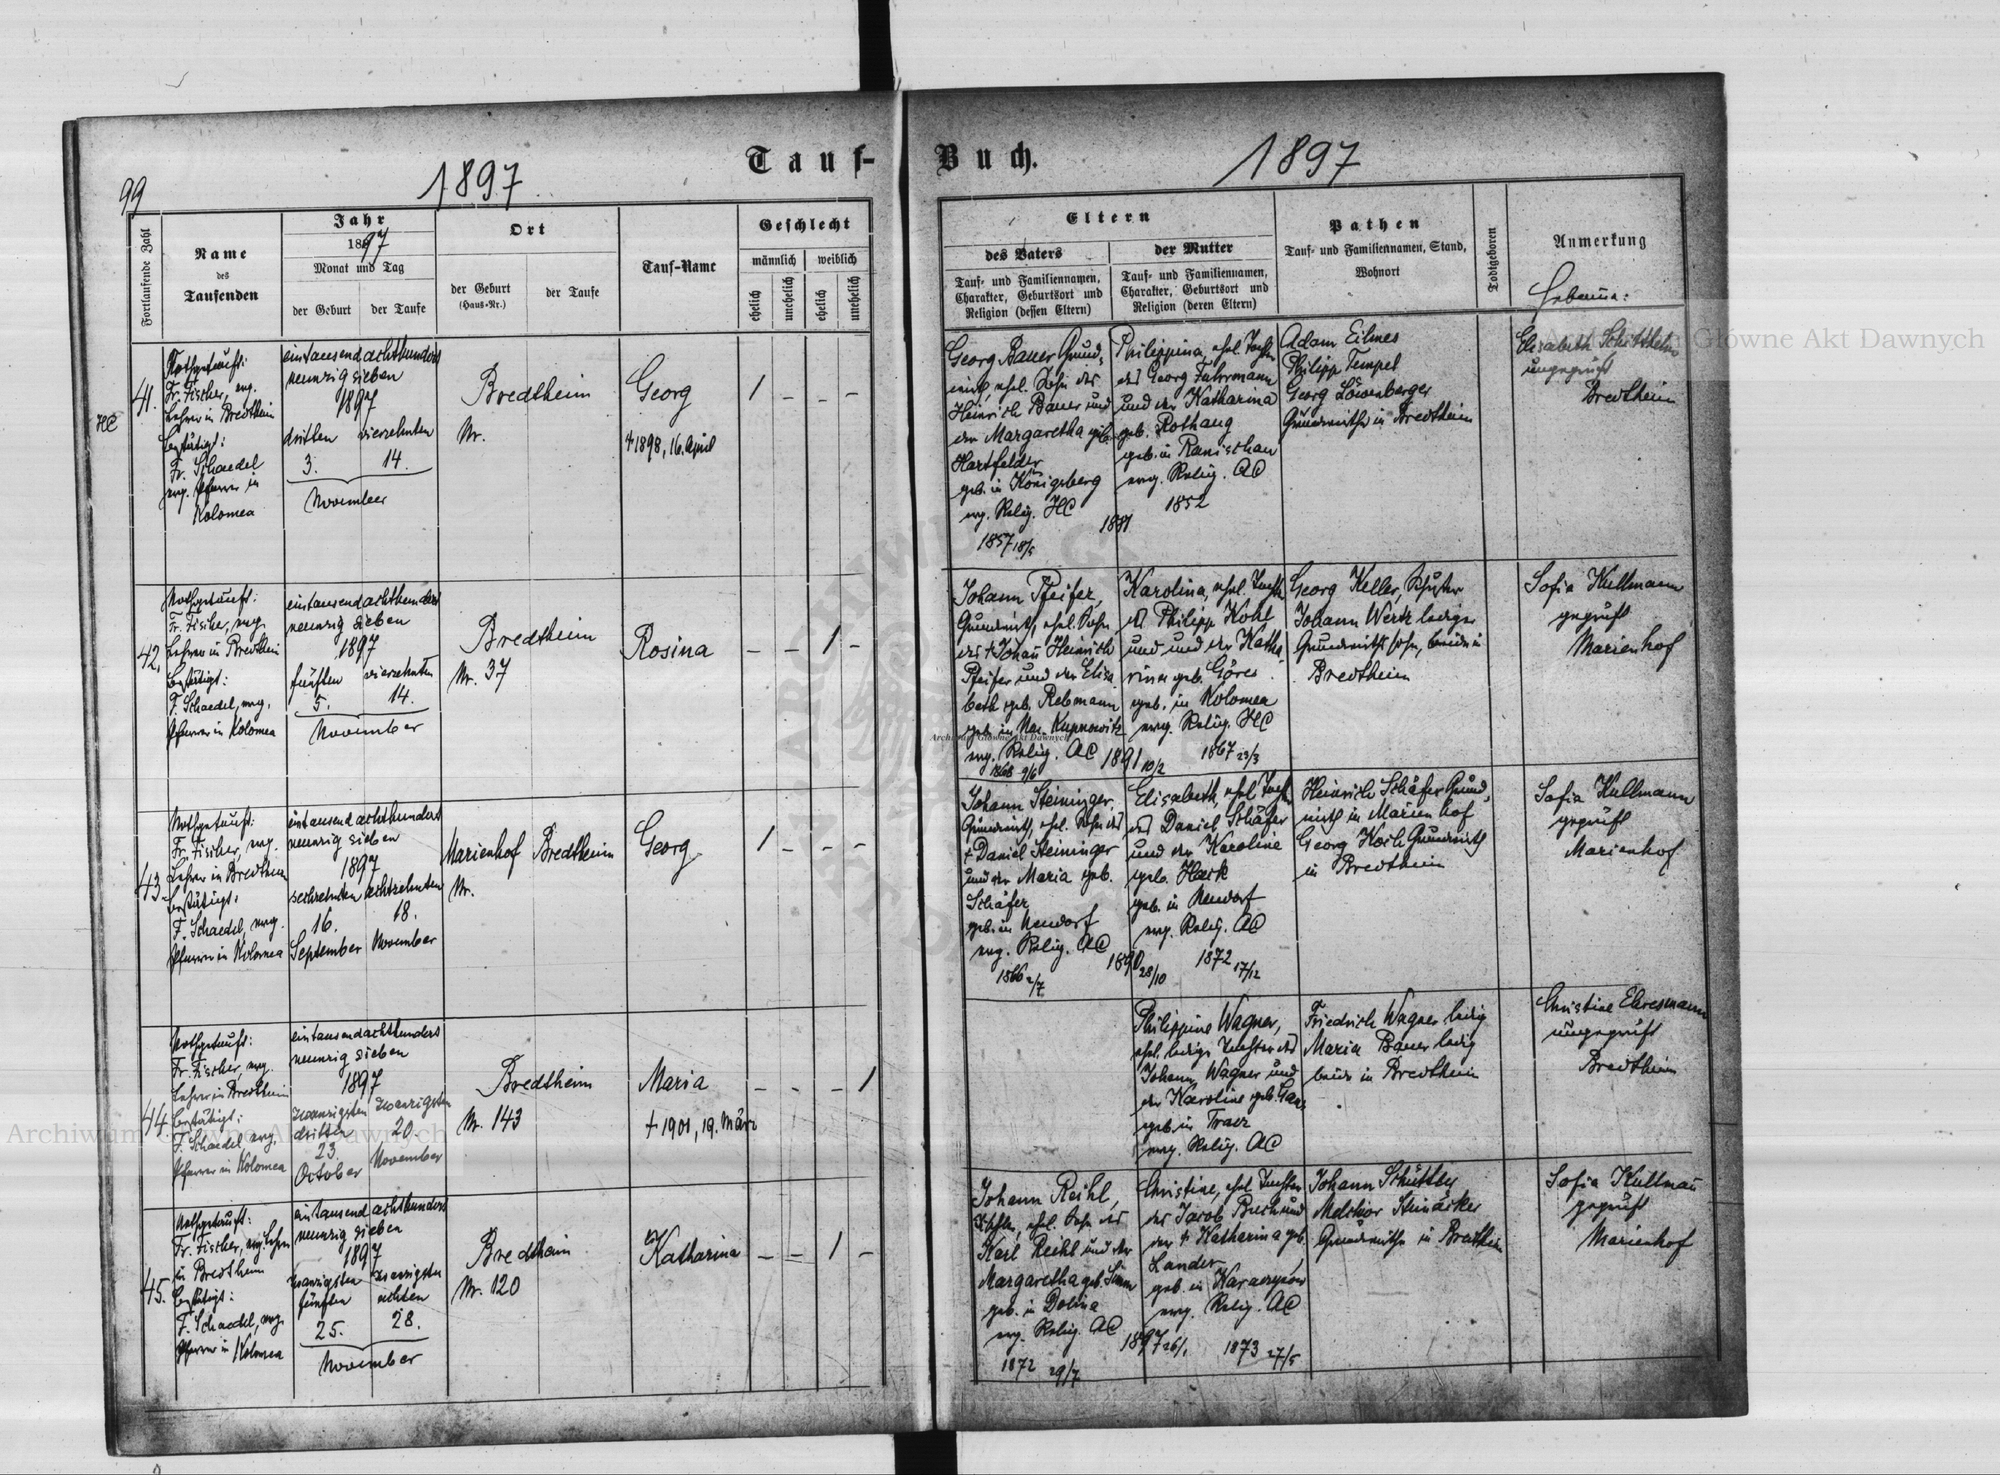 99
1897
Tauf-
Buch.
1897
Fortlaufende Zahl
Name
des
Taufenden
Jahr
1897
Monat und Tag
der Geburt
der Taufe
Ort
der Geburt
(Haus-Nr.)
der Taufe
Tauf-Name
Geschlecht
männlich
weiblich
ehelich
unehelich
ehelich
unehelich
Eltern
des Vaters
Tauf- und Familiennamen,
Charakter, Geburtsort und
Religion (dessen Eltern)
der Mutter
Tauf- und Familiennamen,
Charakter, Geburtsort und
Religion (deren Eltern)
Pathen
Tauf- und Familiennamen, Stand,
Wohnort
Todtgeboren
Anmerkung
HC
41.
Nothgetauft:
Fr. Fischer, evg.
Lehrer in Bredtheim
bestätigt:
Fr. Schaedel
evg. Pfarrer in
Kolomea
eintausendachthundert
neunzig sieben
1897
dritten vierzehnten
3. 14.
November
Bredtheim
Nr.
Georg
† 1898, 16. April
1 - - -
Georg Bauer Grund-
wirth, ehel. Sohn des
Heinrich Bauer und
der Margaretha geb.
Hartfelder
geb. in Königsberg
evg. Relig. HC
1857 18/5
1881
Philippina, ehel. Tochter
des Georg Fuhrmann
und der Katharina
geb. Rothaug
geb. in Ranischau
evg. Relig. AC
1852
Adam Eilmes
Philipp Tempel
Georg Löwenberger
Grundwirthe in Bredtheim
Elisabeth
ungeprüft
Bredtheim
42.
Nothgetauft:
Fr. Fischer, evg.
Lehrer in Bredtheim
bestätigt:
F. Schaedel, evg.
Pfarrer in Kolomea
eintausendachthundert
neunzig sieben
1897
fünften vierzehnten
5. 14.
November
Bredtheim
Nr. 37
Rosina
- - 1 -
Johann Pfeifer,
Grundwirth, ehel. Sohn
des † Johan Heinrich
Pfeifer und der Elisa
beth geb. Rebmann
geb. in
evg. Relig. AC
1868 9/6
1891 10/2
Karolina, ehel. Tochter
des Philipp Kohl
und und der Katha
rina geb. Göres
geb. in Kolomea
evg. Relig. HC
1867 23/3
Georg Keller, Schuster
Johann Wertz lediger
Grundwirthssohn, beide in
Bredtheim
Sofia Kullmann
geprüft
Marienhof
43.
Nothgetauft:
Fr. Fischer, evg.
Lehrer in Bredtheim
bestätigt:
F. Schaedel, evg.
Pfarrer in Kolomea
eintausendachthundert
neunzig sieben
1897
sechzehnten achtzehnten
16. 18.
September November
Marienhof Bredtheim
Nr.
Georg
1 - - -
Johann Steininger,
Grundwirth, ehel. Sohn des
† Daniel Steininger
und der Maria geb.
Schäfer
geb. in Neudorf
evg. Relig. AC
1866 2/7
1890 28/10
Elisabeth, ehel. Tochter
des Daniel Schäfer
und der Karoline
geb. Hack
geb. in Neudorf
evg. Relig. AC
1872 17/12
Heinrich Schäfer Grund-
wirth in Marienhof
Georg Koch Grundwirth
in Bredtheim
Sofia Kullmann
geprüft
Marienhof
44.
Nothgetauft:
Fr. Fischer, evg.
Lehrer in Bredtheim
bestätigt:
F. Schaedel, evg.
Pfarrer in Kolomea
eintausendachthundert
neunzig sieben
1897
zwanzigsten zwanzigsten
dritten 20.
23.
October November
Bredtheim
Nr. 143
Maria
† 1901, 19. März
- - - 1
Philippine Wagner,
ehel. ledige Tochter des
Johann Wagner und
der Karoline geb.
geb. in Tracz
evg. Relig. AC
Friedrich Wagner ledig
Maria Bauer ledig
beide in Bredtheim
Christine Ehresmann
ungeprüft
Bredtheim
45.
Nothgetauft:
Fr. Fischer, evg. Lehrer
in Bredtheim
bestätigt:
F. Schaedel, evg.
Pfarrer in Kolomea
eintausendachthundert
neunzig sieben
1897
zwanzigsten zwanzigsten
fünften achten
25. 28.
November
Bredtheim
Nr. 120
Katharina
- - 1 -
Johann Reihl,
ehel. Sohn des
Karl Reihl und der
Margaretha geb.
geb. in Dolina
evg. Relig. AC
1872 29/7
1897 26/1
Christine, ehel. Tochter
des Jacob Brech und
der † Katharina geb.
Lander
geb. in
evg. Relig. AC
1873 27/5
Johann Schüttler
Melchior Steinacker
Grundwirthe in Bredtheim
Sofia Kullmann
geprüft
Marienhof
Archiwum Główne Akt Dawnych
Archiwum Główne Akt Dawnych
Archiwum Główne Akt Dawnych